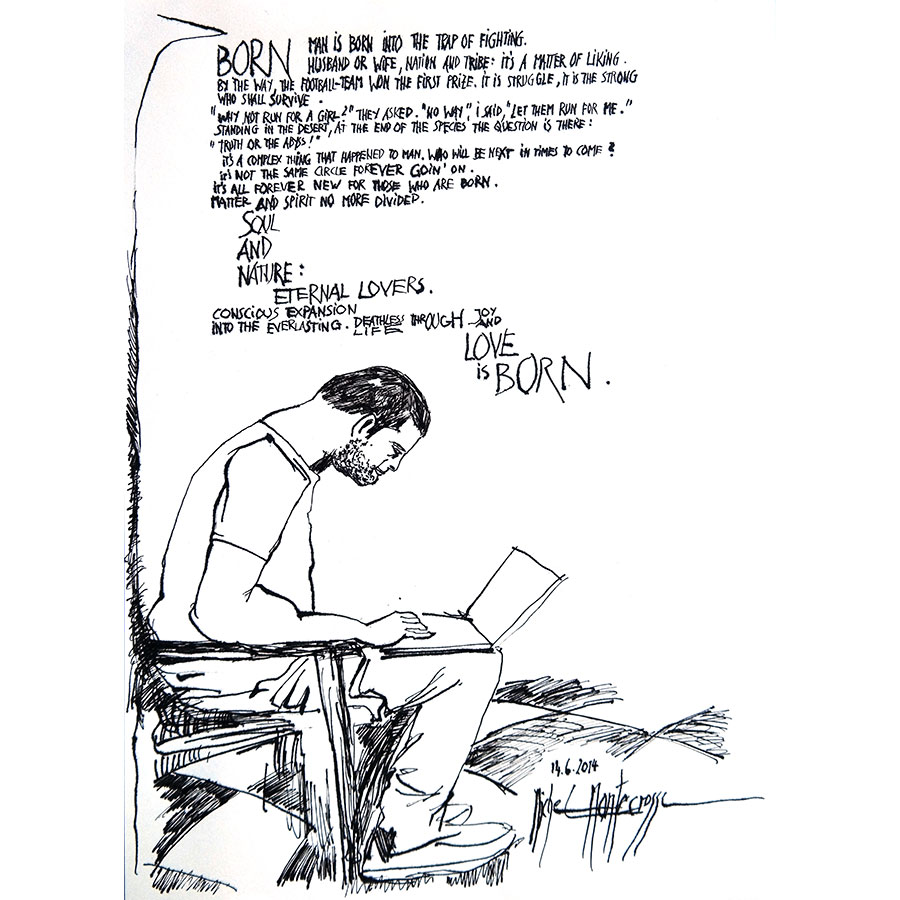 BORN MAN IS BORN INTO THE TRAP OF FIGHTING.
HUSBAND OR WIFE, NATION AND TRIBE: IT'S A MATTER OF LIKING.
BY THE WAY, THE FOOTBALL-TEAM WON THE FIRST PRIZE. IT IS STRUGGLE, IT IS THE STRONG
WHO SHALL SURVIVE.
"WHY NOT RUN FOR A GIRL?" THEY ASKED. "NO WAY", I SAID, "LET THEM RUN FOR ME."
STANDING IN THE DESERT, AT THE END OF THE SPECIES THE QUESTION IS THERE:
"TRUTH OR THE ABYSS!"
IT'S A COMPLEX THING THAT HAPPENED TO MAN. WHO WILL BE NEXT IN TIMES TO COME?
IT'S NOT THE SAME CIRCLE FOREVER GOIN' ON.
IT'S ALL FOREVER NEW FOR THOSE WHO ARE BORN.
MATTER AND SPIRIT NO MORE DIVIDED.
SOUL
AND
NATURE:
ETERNAL LOVERS.
CONSCIOUS EXPANSION
INTO THE EVERLASTING. DEATHLESS LIFE THROUGH JOY AND
LOVE
is BORN.
14.6.2014
Michel Montecrossa